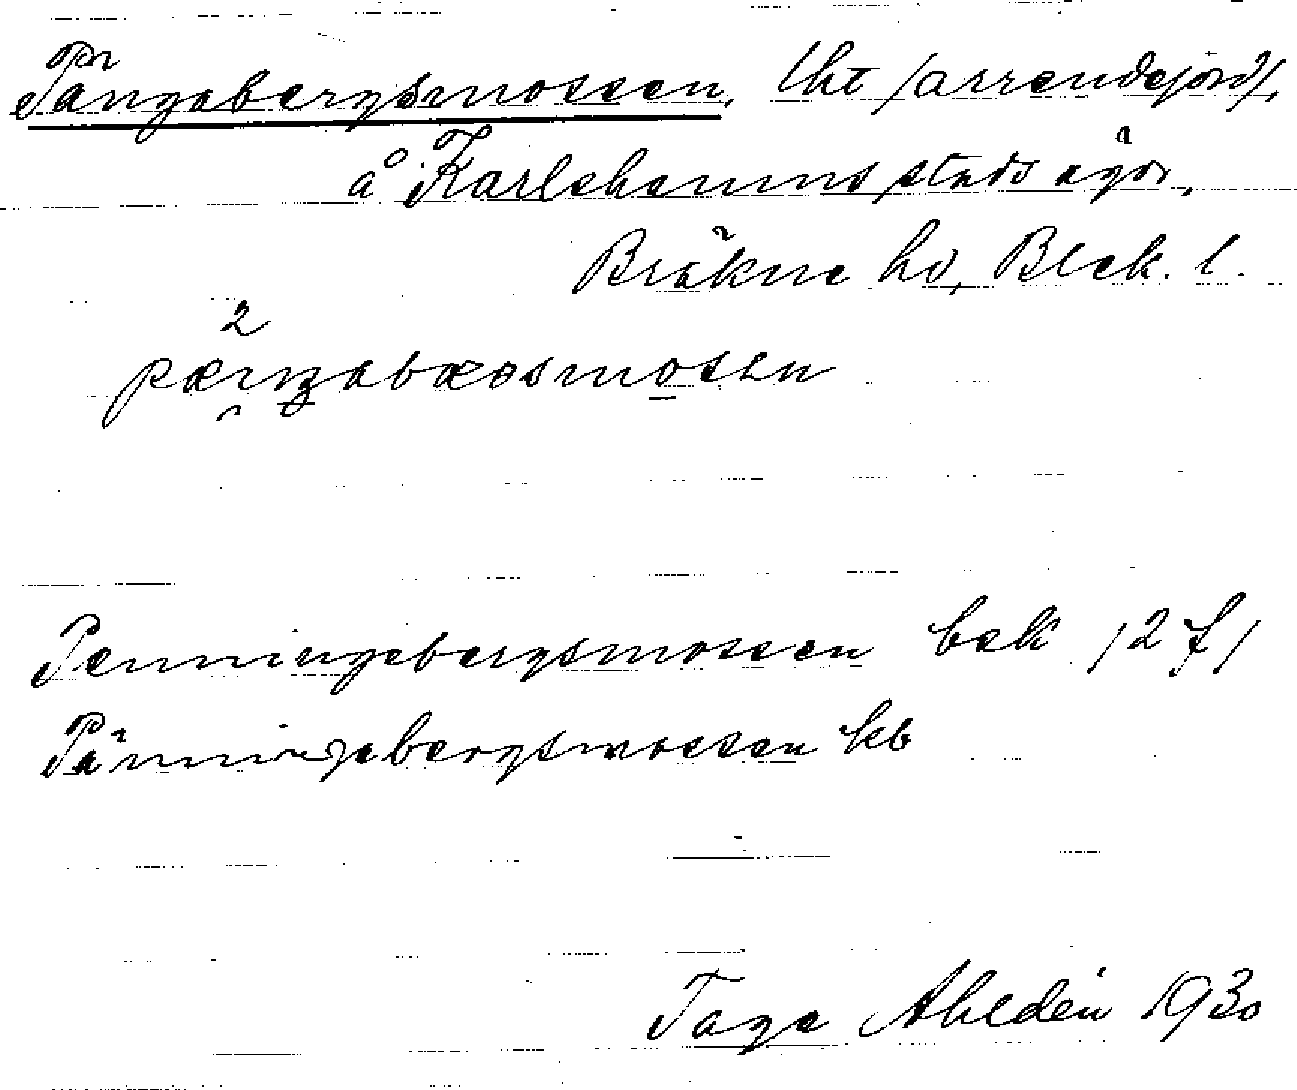 Pängabergsmossen, lht /arrendejord/,
å Karlshamns stads ägor,
Bräkne hd, Blek. l.
Penningebergsmossen bek /2 f/
Pänningebergsmossen kb
Tage Ahldén 1930